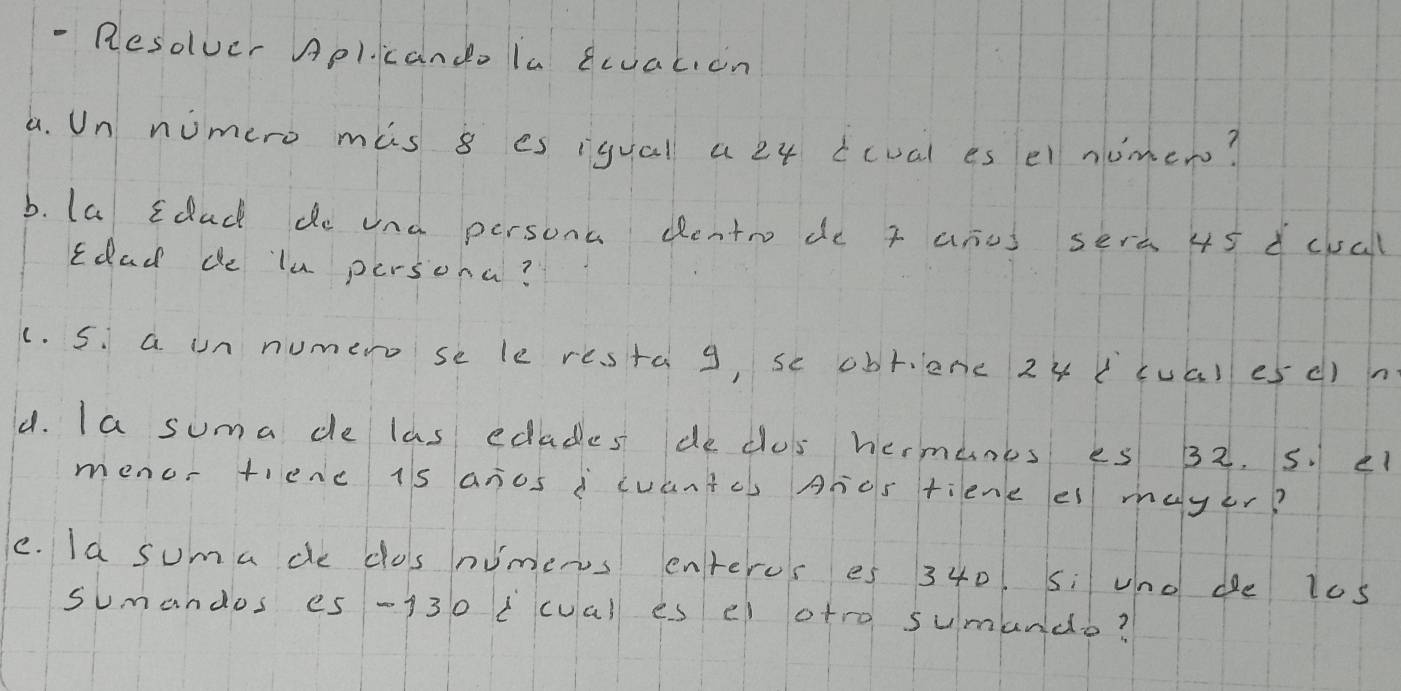 - Resolver Aplicando la Ecuación
a. Un número más 8 es igual a 24 ¿cual es el número?
b. la Edad de una persona dentro de 7 años sera 45 ¿ cual
Edad de la persona?
c. Si a un numero se le resta 9, se obtiene 24 ¿ cual es el n
d. la suma de las edades de dos hermanos es 32. Si el
menor tiene 15 años ¿ cuantos Años tiene el mayor?
e. la suma de dos números enteros es 340. Si uno de los
sumandos es -130 ¿ cual es el otro sumando?